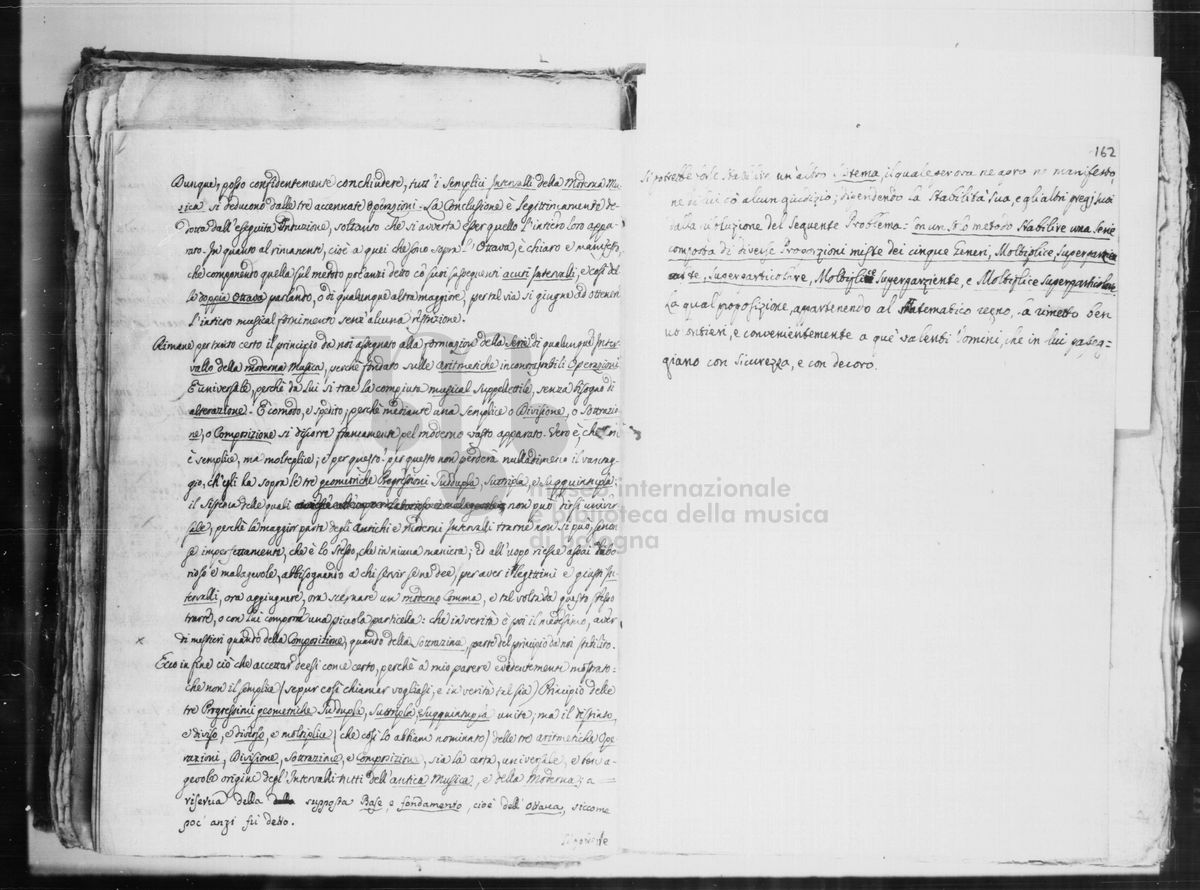 Dunque, posso confidentemente conchiudere, tutt'i semplici Intervalli della Moderna Mu-
sica si deducono dalle tre accennate Operazioni. La Conclusione è legittimamente de-
dotta dall'eseguita Intuzione, soltanto che si averta esser quello l'intiero loro appa-
rato. In quanto al rimanente, cioè a quei che sono sopra l'Ottava, è chiaro e manifesto,
che componendo quella sul metodo poc'anzi detto cò suoi susseguenti acuti Intervalli, e così del-
la doppia Ottava parlando, o di qualunque altra maggiore, per tal via si giugne ad ottener
l'intiero musical fornimento senz'alcuna restrizione.
Rimane per tanto certo il principio da noi assegnato alla formazione della serie di qualunque Inter-
vallo della moderna Musica, perchè fondato sulle aritmetiche incontrastabili Operazioni
È universale, perchè da lui si trae la compiuta musical suppellettile, senza bisogno di
alterazione. È comodo, e spedito, perchè mediante una semplice o Divisione, o Sottrazio-
ne, o Composizione si discorre francamente pel moderno vasto apparato. Vero è, che
è semplice, ma molteplice; e per questo? per questo non perderà nulladimeno il vantag-
gio, ch'egli ha sopra le tre geometriche Progressioni Suddupla, Suttripla, e Sugquintupla;
il Sistema delle quali non può dirsi univer-
sale, perchè la maggior parte degli Antichi e Moderni Intervalli trarne non si può, senon
se imperfettamente, che è lo stesso, che in niuna maniera; ed all'uopo riesce assai labo-
rioso e malagevole, abbisognando a chi servir sene dee, per aver i legittimi e giusti In-
tervalli, ora aggiugnere, ora scemare un moderno Comma, e tal volta da questo stesso
trarre, o con lui comporre una picciola particella: che in verità è poi il medesimo, aver
di mestieri quando della Composizione, quando della Sottrazione, parte del principio da noi stabilito.
Ecco in fine ciò che accettar deesi come certo, perchè a mio parere evidentemente mostrato:
che non il semplice (sepur così chiamar vogliasi, e in verità tal sia) Principio delle
tre Progressioni geometriche Suddupla, Suttripla, Sugquintupla unite; ma il distinto,
e diviso, e diverso, e molteplice (che così lo abbiam nominato) delle tre aritmetiche Ope-
razioni, Divisione, Sottrazione, e Composizione, sia la certa, universale, e ben a-
gevole origine degl'Intervalli tutti dell'antica Musica, e della Moderna; a
riserva della supposta Base, e fondamento, cioè dell'Ottava, siccome
poc'anzi fu detto.
Si potrebbe
162
Si potrebbe stabilire un'altro Sistema, il quale per ora ne apro ne manifesto,
ne di lui fò alcun giudizio; dipendendo la stabilità sua, e gli altri pregj suoi
dalla soluzione del seguente Problema: Con un solo metodo stabilire una serie
composta di diverse Proporzioni miste dei cinque Generi, Moltiplice, Superpar-
ziente, Superparticolare, Moltiplice Superparziente, e Moltiplice Superparticolare.
La qual proposizione, appartenendo al Matematico regno, la rimetto ben
volontieri, e convenientemente a que' valenti Uomini, che in lui passeg-
giano con sicurezza, e con decoro.
museo internazionale
e biblioteca della musica
di bologna